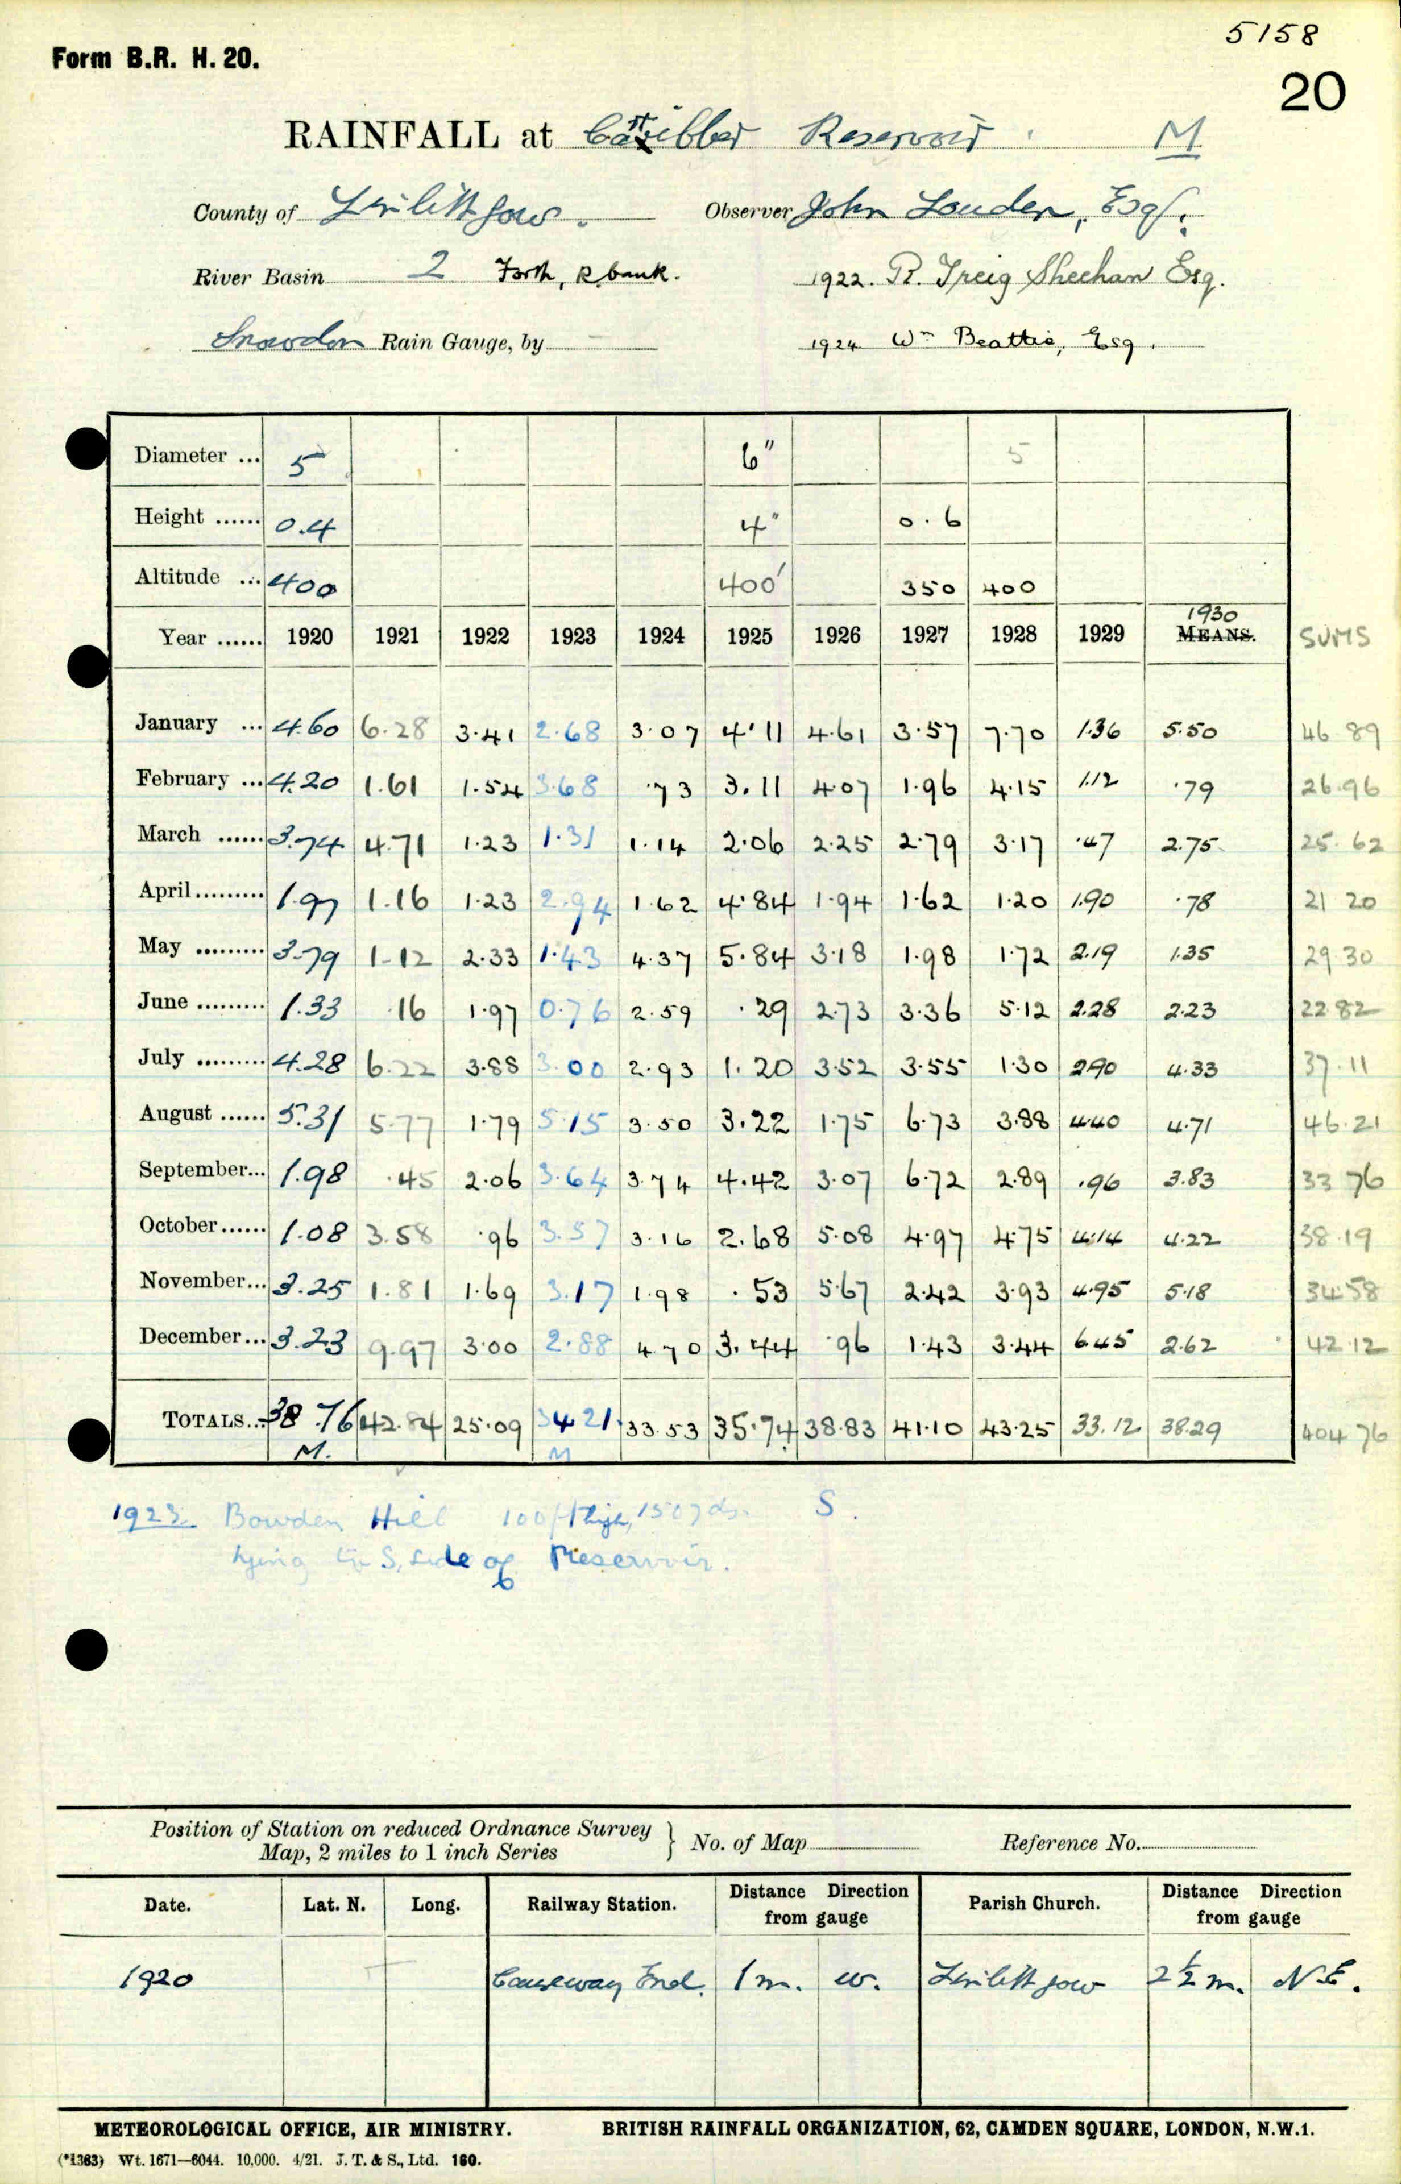 5158
Form B.R. H. 20.
20
RAINFALL at Reservoir M
County of Linlithgow. Observer John Louden, Esq.
River Basin 2 Forth, R bank. 1922. R. Greig Sheehan Esq.
Snowdon Rain Gauge, by 1924 Wm Beattie, Esq.
Diameter ... 5 6" 5
Height ...... 0.4 4" 0.6
Altitude ... 400 400' 350 400
Year ...... 1920 1921 1922 1923 1924 1925 1926 1927 1928 1929 1930 MEANS. SUMS
January ... 4.60 6.28 3.41 2.68 3.07 4.11 4.61 3.57 7.70 1.36 5.50 46 89
February ... 4.20 1.61 1.54 3.68 .73 3.11 4.07 1.96 4.15 1.12 .79 26.96
March ...... 3.74 4.71 1.23 1.31 1.14 2.06 2.25 2.79 3.17 .47 2.75 25.62
April ......... 1.97 1.16 1.23 2.94 1.62 4.84 1.94 1.62 1.20 1.90 .78 21 20
May ......... 3.79 1.12 2.33 1.43 4.37 5.84 3.18 1.98 1.72 2.19 1.35 29 30
June ......... 1.33 .16 1.97 0.76 2.59 .29 2.73 3.36 5.12 2.28 2.23 22.82
July ......... 4.28 6.22 3.88 3.00 2.93 1.20 3.52 3.55 1.30 2.90 4.33 37.11
August ...... 5.31 5.77 1.79 5.15 3.50 3.22 1.75 6.73 3.88 4.40 4.71 46.21
September... 1.98 .45 2.06 3.64 3.74 4.42 3.07 6.72 2.89 .96 3.83 33 76
October...... 1.08 3.58 .96 3.57 3.16 2.68 5.08 4.97 4.75 4.14 4.22 38.19
November... 3.25 1.81 1.69 3.17 1.98 .53 5.67 2.42 3.93 4.95 5.18 34.58
December... 3.23 9.97 3.00 2.88 4.70 3.44 .96 1.43 3.44 6.45 2.62 42.12
TOTALS... 38.76 42.84 25.09 34.21 33.53 35.74 38.83 41.10 43.25 33.12 38.29 404 76
M. M
1923 Bowden Hill 100 ft high, 150 yds. S.
lying to S. side of Reservoir.
Position of Station on reduced Ordnance Survey
Map, 2 miles to 1 inch Series } No. of Map Reference No.
Date. Lat. N. Long. Railway Station. Distance Direction from gauge Parish Church. Distance Direction from gauge
1920 Causeway End. 1 m. W. Linlithgow 2½ m. N.E.
METEOROLOGICAL OFFICE, AIR MINISTRY. BRITISH RAINFALL ORGANIZATION, 62, CAMDEN SQUARE, LONDON, N.W.1.
(*1383) Wt. 1671—6044. 10,000. 4/21. J. T. & S., Ltd. 160.